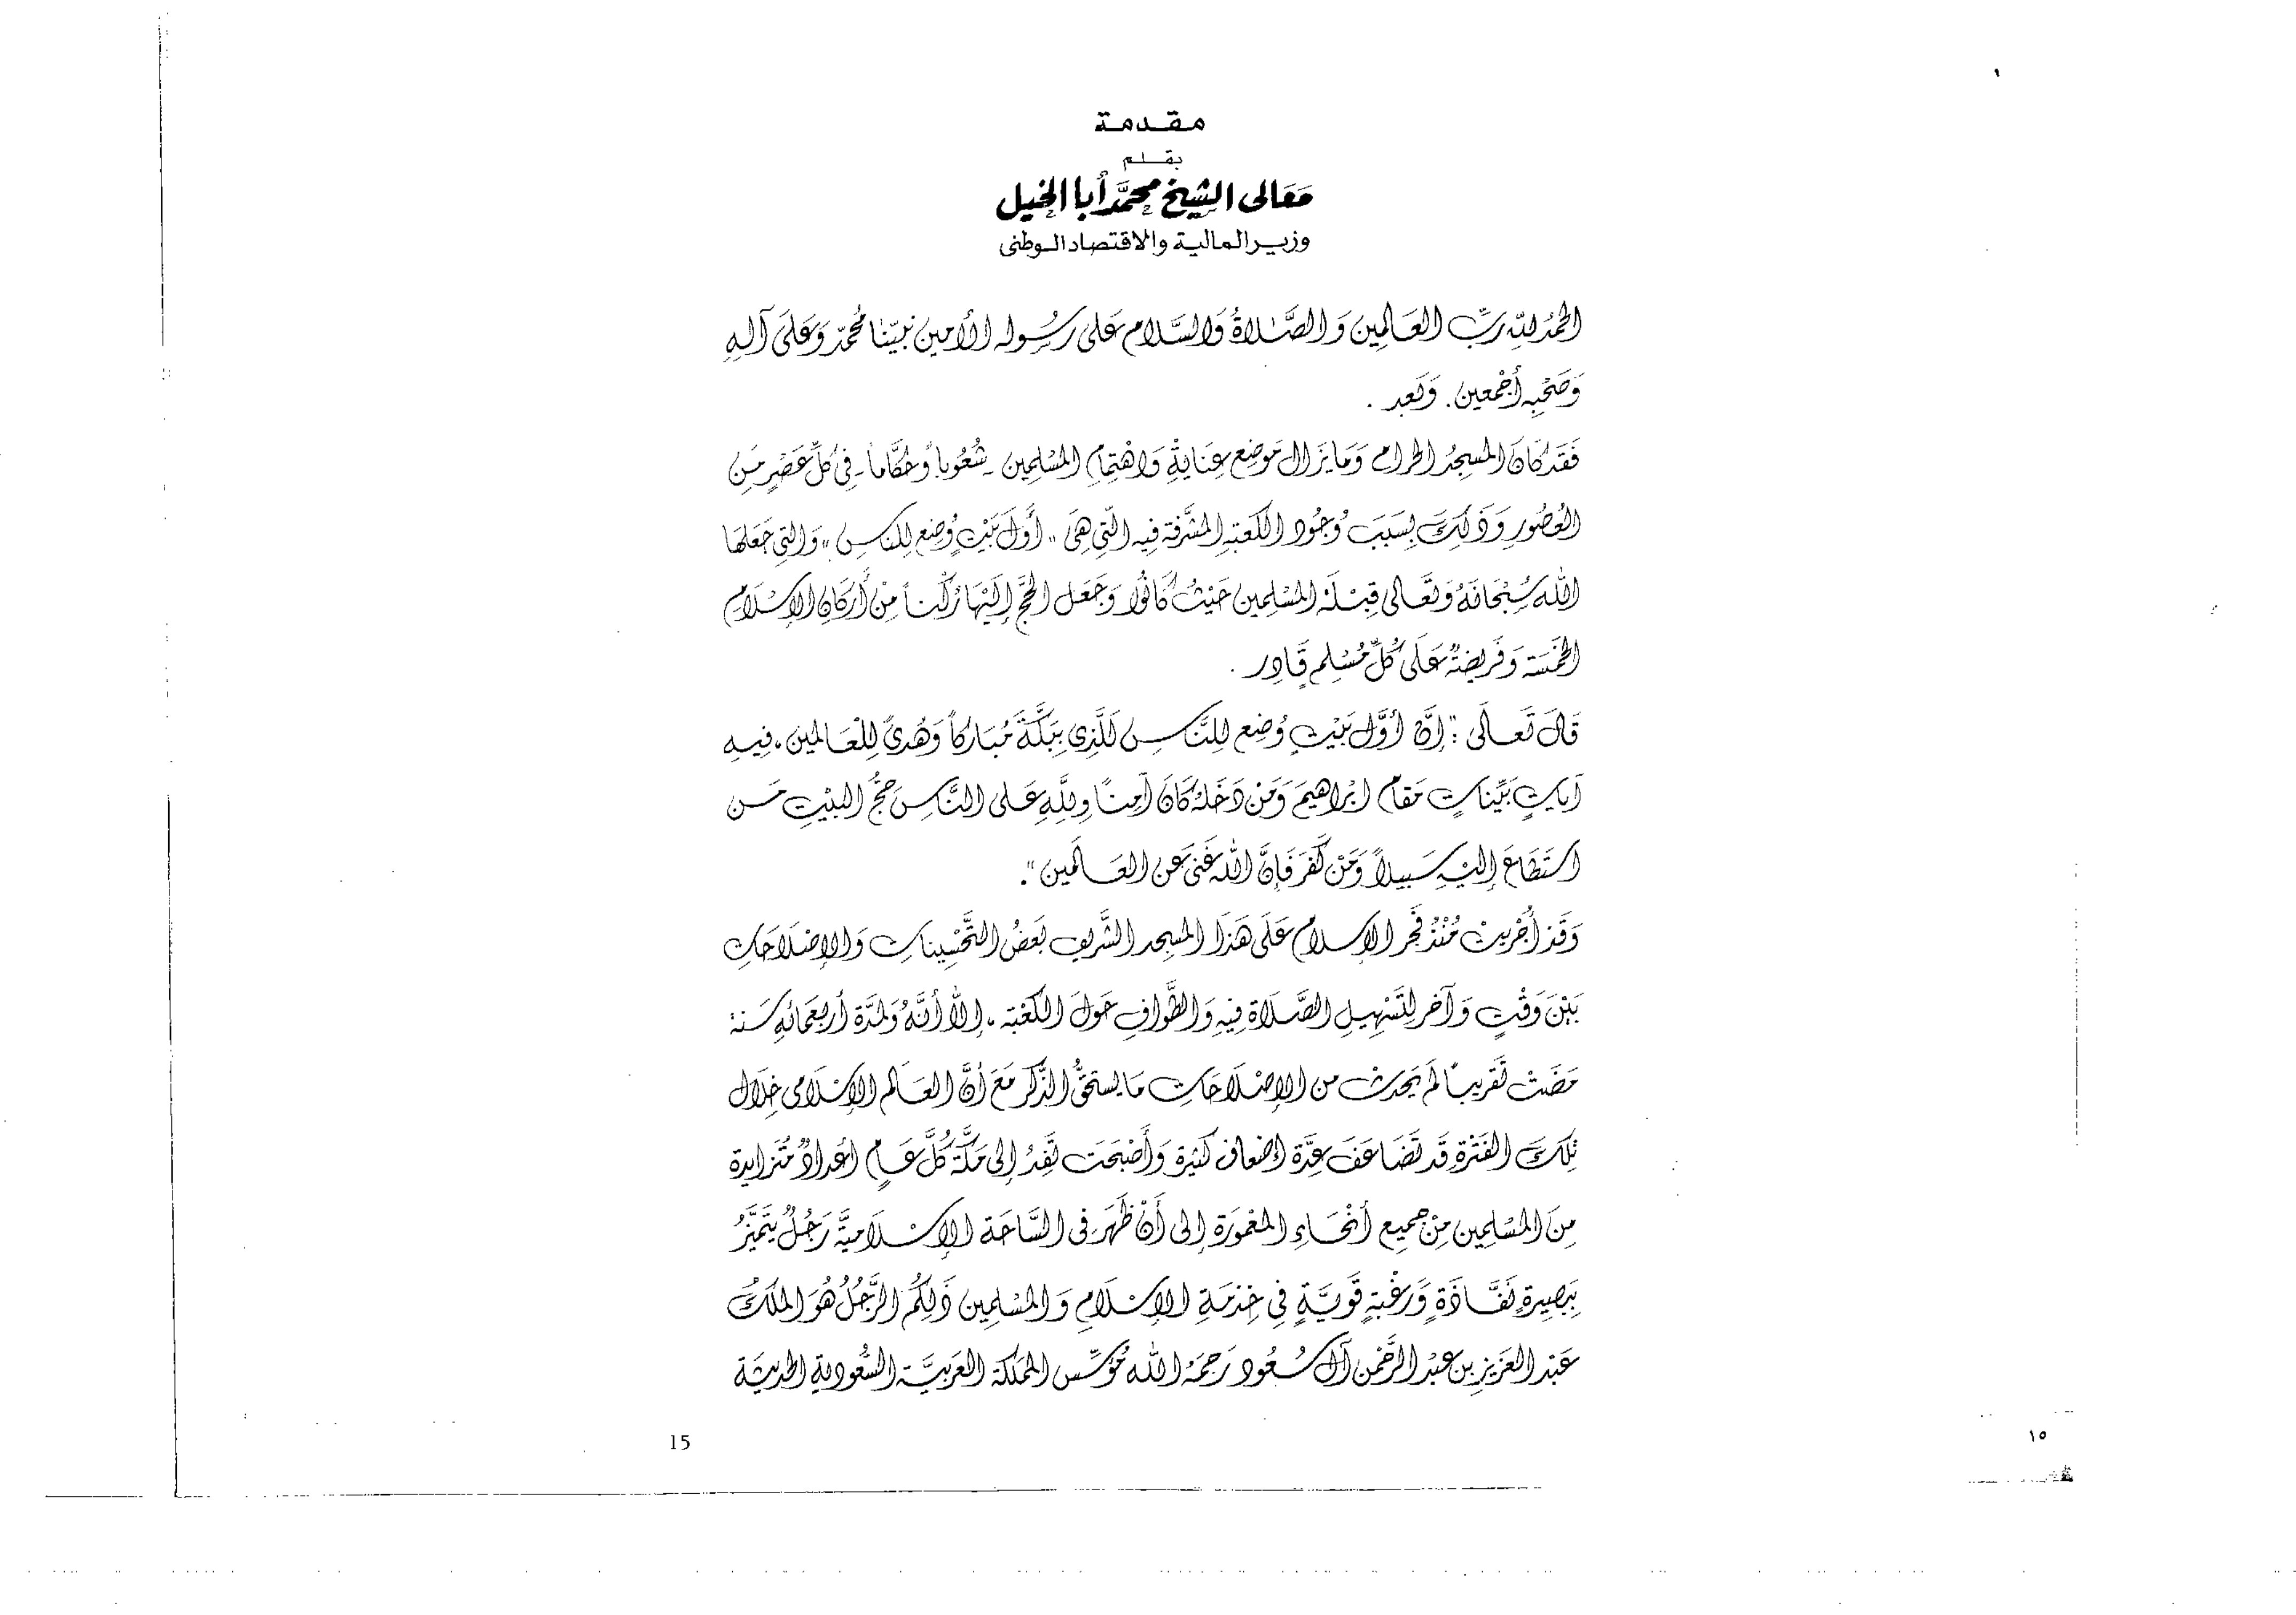 مقدمة
بقلم
مَعَالى الشيخ محمَّد أبا الخيل
وزير المالية والاقتصاد الوطنى
الحمدُ للهِ ربِّ العَالمِين وَالصَّلاةُ وَالسَّلام عَلى رسُوله الأمين نبيّنا مُحمّد وَعَلَى آلهِ
وَصَحْبِه أجْمعين. وَبَعد .
فَقَد كَانَ المسجِدُ الحرام وَمَا يَزَال مَوضِع عِنَايةِ وَاهْتِمامِ المسْلِمِين - شُعُوباً وَحُكَّاماً - في كلِّ عَصْرٍ مِنَ
العُصُورِ وَذَلِكَ بِسَبَبِ وُجُود الكَعبَةِ المشَّرفة فِيه الّتي هِيَ "أوّلَ بَيْتٍ وُضِع لِلناسِ" وَالتي جَعَلهَا
الله سُبْحَانَهُ وَتَعَالى قِبْلَة المسْلِمين حَيْثُ كَانُوا وَجَعَل الحَجَّ إلَيْهَا رُكْناً مِنْ أَركَانِ الإسْلَامِ
الخمْسَة وَفَريضَةً عَلَى كُلِّ مُسْلِمٍ قَادِر .
قَالَ تَعَالَى : "إنَّ أوَّلَ بَيْتٍ وُضِع لِلنَّاسِ لَلَّذِى بِبَكَّةَ مُبَارَكاً وَهُدىً لِلْعَالمين، فِيهِ
آيَاتٌ بَيِّناتٌ مَقامُ ابْرَاهيمَ وَمَن دَخَلهُ كَانَ آمِنًا وللَّهِ عَلى النَّاسِ حِجُّ البيْتِ مَن
اسْتَطَاعَ إليْهِ سَبيلاً وَمَنْ كَفَرَ فَإنَّ اللهَ غَنىٌ عَنِ العَالَمين".
وَقَد أُجْرِيتْ مُنْذُ فَجر الإسلام عَلَى هَذَا المسجد الشَّريف بَعضُ التَّحْسِيناتِ وَالإصْلَاحَاتِ
بَيْنَ وَقْتٍ وَآخر لِتَسْهِيلِ الصَّلَاة فِيهِ وَالطَّوافِ حَولَ الكَعْبَة، إلّا أنَّهُ وَلمدَّة أربعمائةِ سَنة
مَضَتْ تَقريباً لَمْ يَحدث من الإصْلَاحَاتِ مَا يستَحقُّ الذّكر مَعَ أَنَّ العَالم الإسْلَامى خِلَال
تِلكَ الفَتْرةِ قَد تَضَاعَفَ عِدَّة إضعاف كثيرة وَأَصْبَحَت تَفِدُ إلى مَكَّةَ كُلَّ عَامٍ أعدادٌ مُتَزايدة
مِنَ المسْلِمِين مِنْ جميع أنْحَاءِ المعْمُورَة إلى أَنْ ظَهَرَ فى السَّاحَة الإسْلَاميَّة رَجُلٌ يتَميَّزُ
بِبَصِيرةٍ نَفَّاذَةٍ وَرَغْبةٍ قَويَّةٍ فِي خِدْمَةِ الإسْلَامِ وَالمسْلِمِين ذَلِكُم الرَّجُلُ هُوَ الملَكُ
عَبْد العَزيز بن عَبْد الرَّحْمن آل سُعُود رَحمَهُ الله مُؤسِّس المملَكَة العَرَبيَّة السُّعُودية الحديثَة
15
١٥